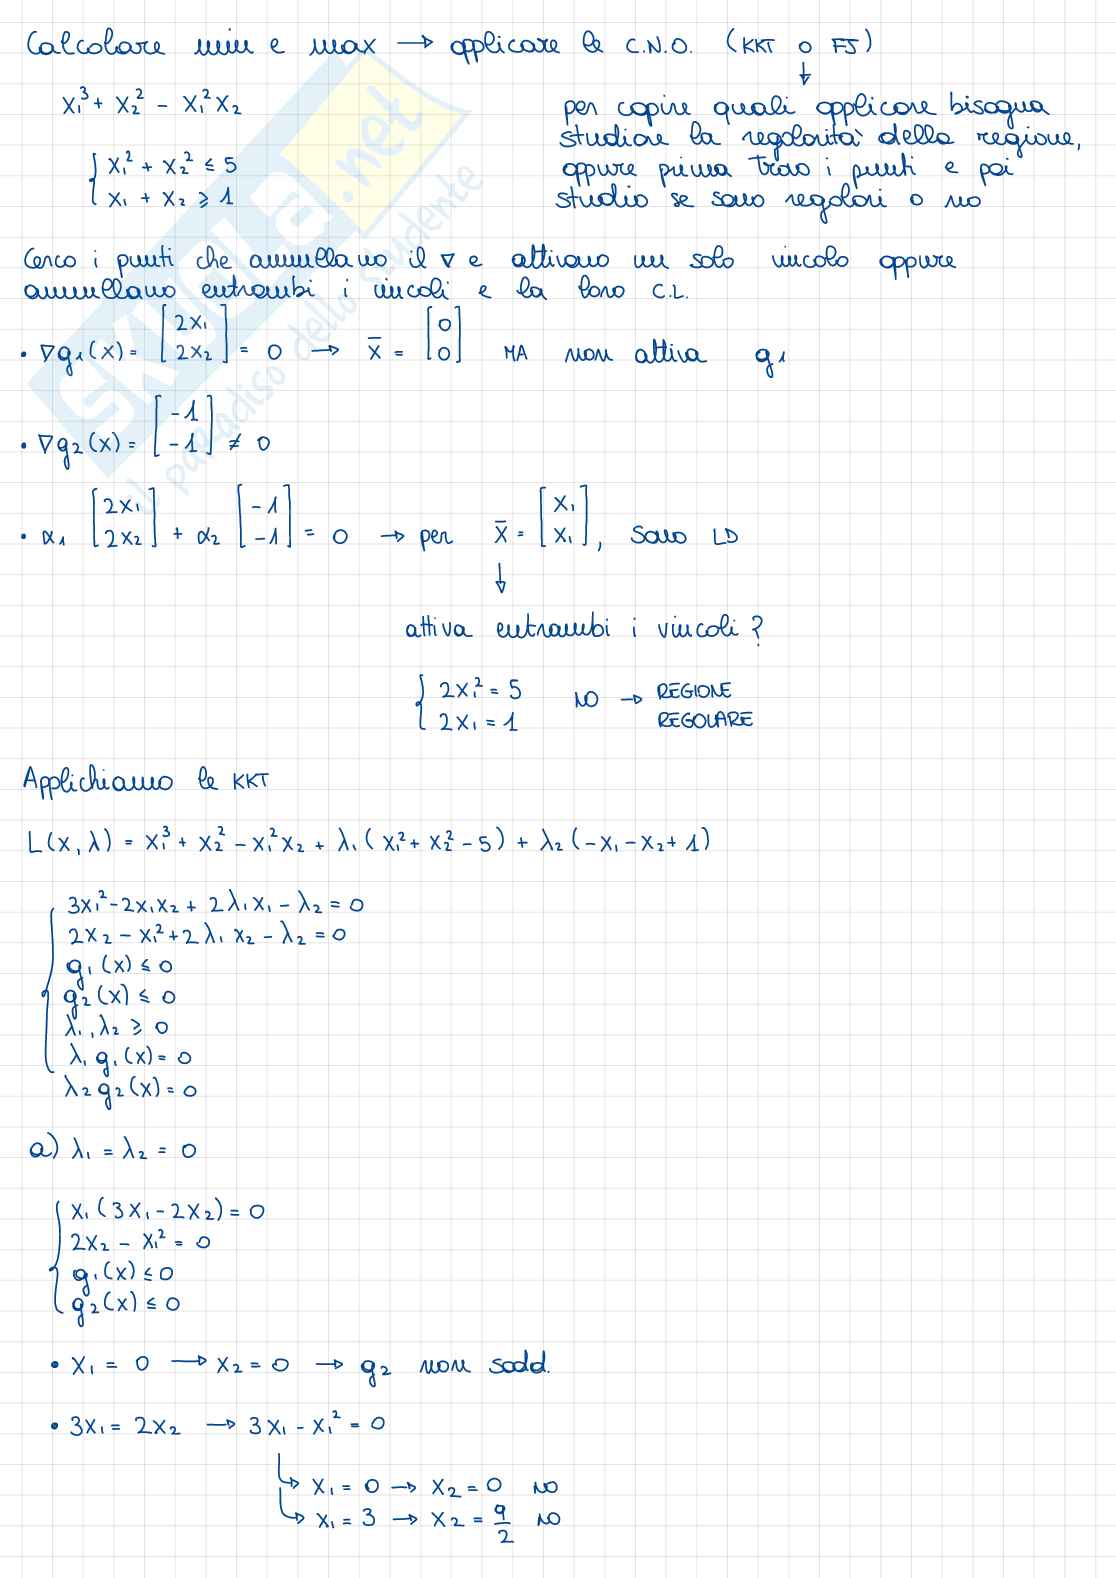 Calcolare min e max → applicare le C.N.O. (KKT o FJ)
↓
x₁³ + x₂² - x₁²x₂
per capire quali applicare bisogna
studiare la regolarità della regione,
oppure prima trovo i punti e poi
studio se sono regolari o no
{ x₁² + x₂² ≤ 5
x₁ + x₂ ≥ 1
Cerco i punti che annullano il ∇ e attivano un solo vincolo oppure
annullano entrambi i vincoli e la loro C.L.
• ∇g₁(x) = [2x₁ 2x₂] = 0 → x̄ = [0 0] MA non attiva g₁
• ∇g₂(x) = [-1 -1] ≠ 0
• α₁ [2x₁ 2x₂] + α₂ [-1 -1] = 0 → per x̄ = [x₁ x₁], sono LD
↓
attiva entrambi i vincoli?
{ 2x₁² = 5
2x₁ = 1
NO → REGIONE
REGOLARE
Applichiamo le KKT
L(x, λ) = x₁³ + x₂² - x₁²x₂ + λ₁(x₁² + x₂² - 5) + λ₂(-x₁ - x₂ + 1)
{ 3x₁² - 2x₁x₂ + 2λ₁x₁ - λ₂ = 0
2x₂ - x₁² + 2λ₁x₂ - λ₂ = 0
g₁(x) ≤ 0
g₂(x) ≤ 0
λ₁, λ₂ ≥ 0
λ₁g₁(x) = 0
λ₂g₂(x) = 0
a) λ₁ = λ₂ = 0
{ x₁(3x₁ - 2x₂) = 0
2x₂ - x₁² = 0
g₁(x) ≤ 0
g₂(x) ≤ 0
• x₁ = 0 → x₂ = 0 → g₂ non sodd.
• 3x₁ = 2x₂ → 3x₁ - x₁² = 0
↳ x₁ = 0 → x₂ = 0 NO
↳ x₁ = 3 → x₂ = 9/2 NO
SKUOLA.net
il paradiso dello studente